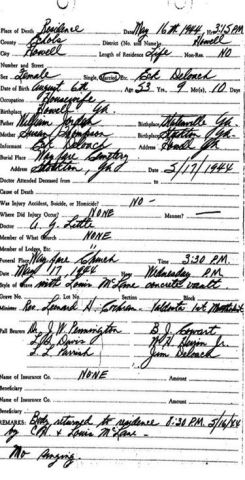 Place of Death Residence Date May 16th 1944 3:15 PM
County Echols District (No. and Name) Howell
City Howell Length of Residence Life Non-Res. NO
Number and Street
Sex Female Single, Married, Etc. Ed Deloach
Date of Birth August 6th Age 53 Yrs., 9 Mo(s), 10 Days
Occupation Housewife
Birthplace Howell Ga.
Father William Jordan Birthplace Statenville Ga.
Mother Susan Thompson Birthplace Ga.
Informant Ed Deloach Address Howell Ga
Burial Place Wayfare Cemetery
Address Ga. Date 5/17/1944
Doctor Attended Deceased from to
Cause of Death
Was Injury Accident, Suicide, or Homicide? NO -
Where Did Injury Occur? NONE Manner? —
Doctor A. G. Little
Member of What Church NONE
Member of Lodge, Etc.
Funeral Place Wayfare Church Time 3:30 P.M.
Date May 17, 1944 Wednesday P.M.
Style of Grave with Louis McLane concrete vault.
Grave No. Lot No. Section Block
Minister Rev. Leonard H. Cochran Valdosta 1st Methodist
Pall Bearers J. W. Pennington B. J. Cowart
L. B. Davis Jr.
T. L. Parrish Jim Deloach
Name of Insurance Co. NONE Amount
Beneficiary
Name of Insurance Co. Amount
Beneficiary
REMARKS: Body returned to residence 8:30 P.M. 5/16/44
by & Louis McLane.
No Singing